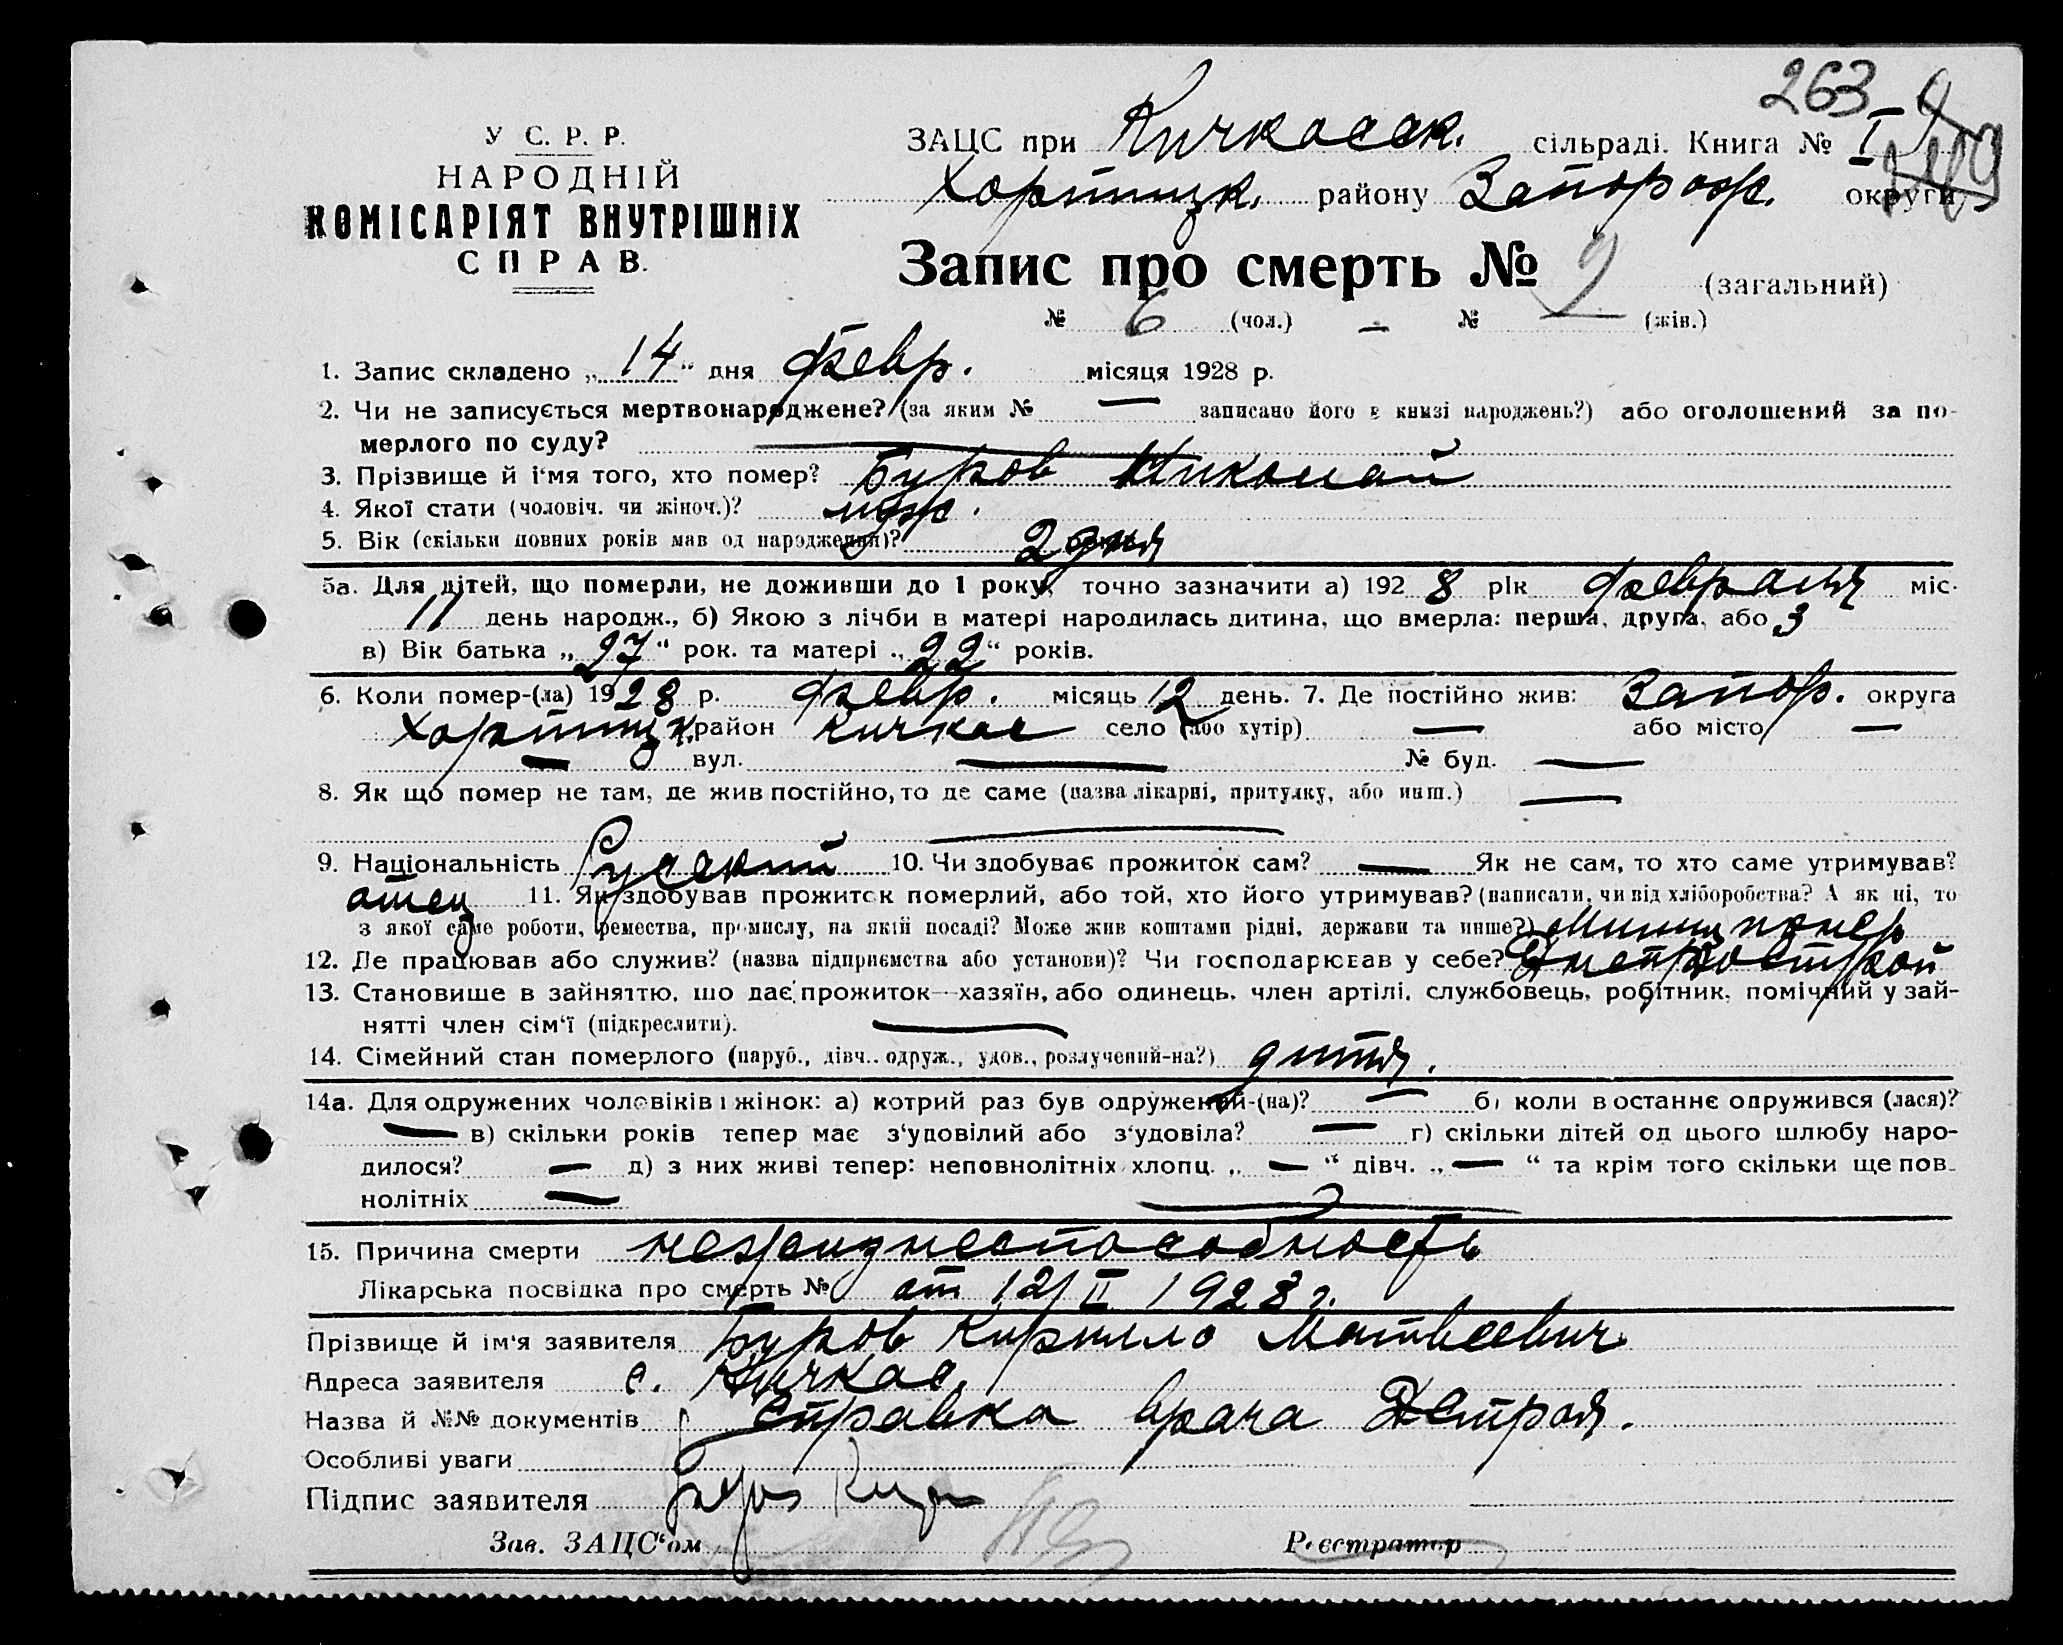 263
У С. Р. Р.
НАРОДНІЙ
КОМІСАРІЯТ ВНУТРІШНІХ
СПРАВ.
ЗАЦС при Кичкасск. сільраді. Книга № I
Хортицк. району Запорож. округи
Запис про смерть № 9 (загальний)
№ 6 (чол.) — № — (жін.)
1. Запис складено „14“ дня февр. місяця 1928 р.
2. Чи не записується мертвонароджене? (за яким № — записано його в книзі народжень?) або оголошений за по-
мерлого по суду? —
3. Прізвище й і‘мя того, хто помер? Буров Николай
4. Якої стати (чоловіч. чи жіноч.)? муж.
5. Вік (скільки повних років мав од народження)? 2 дня
5а. Для дітей, що померли, не доживши до 1 року, точно зазначити а) 1928 рік февраля міс.
11 день народж., б) Якою з лічби в матері народилась дитина, що вмерла: перша, друга, або 3
в) Вік батька „27“ рок. та матері „22“ років.
6. Коли помер-(ла) 1928 р. февр. місяць 12 день. 7. Де постійно жив: Запор. округа
Хортицк. район Кичкас село (або хутір) — або місто —
— вул. — № буд. —
8. Як що помер не там, де жив постійно, то де саме (назва лікарні, притулку, або инш.) —
—
9. Національність Русский 10. Чи здобував прожиток сам? — Як не сам, то хто саме утримував?
отец 11. Як здобував прожиток померлий, або той, хто його утримував? (написати, чи від хліборобства? А як ні, то
з якої саме роботи, ремества, промислу, на якій посаді? Може жив коштами рідні, держави та инше?)
12. Де працював або служив? (назва підприємства або установи)? Чи господарював у себе? Днепрострой
13. Становище в зайняттю, що дає прожиток—хазяїн, або одинець, член артілі, службовець, робітник, помічний у зай-
нятті член сім‘ї (підкреслити). —
14. Сімейний стан померлого (паруб., дівч., одруж., удов., розлучений-на?) дитя.
14а. Для одружених чоловіків і жінок: а) котрий раз був одружений-(на)? — б) коли востаннє одружився (лася)?
— в) скільки років тепер має з‘удовілий або з‘удовіла? — г) скільки дітей од цього шлюбу наро-
дилося? — д) з них живі тепер: неповнолітніх хлопц. „—“ дівч. „—“ та крім того скільки ще пов-
нолітніх —
15. Причина смерти нежизнеспособность
Лікарська посвідка про смерть № от 12/II 1928 г.
Прізвище й ім‘я заявителя Буров Кирилло Матвеевич
Адреса заявителя с. Кичкас.
Назва й №№ документів Справка врача Дстроя.
Особливі уваги
Підпис заявителя Буров
Зав. ЗАЦС‘ом Реєстратор